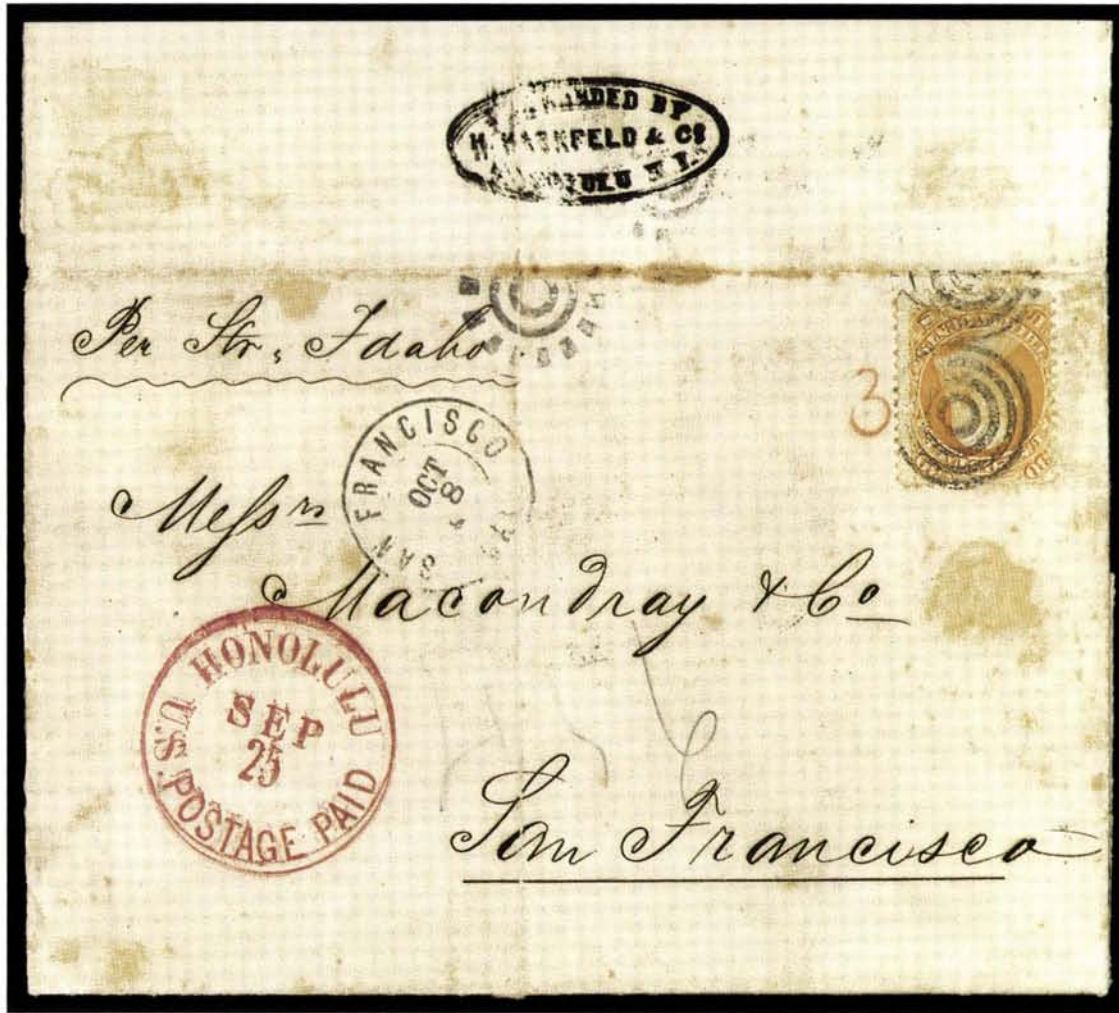 WARDED BY
H. HACKFELD & Co
HONOLULU H I.
Per Str, Idaho
3
SAN FRANCISCO
OCT
8
CAL
Messrs
Macondray & Co
HONOLULU
U.S.
SEP
25
POSTAGE PAID
San Francisco